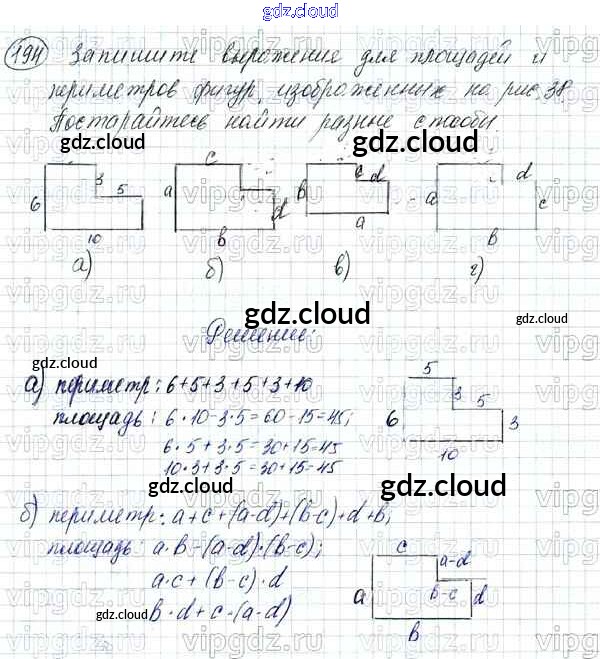 gdz.cloud
194 Запишите выражение для площадей и
периметров фигур, изображенных на рис. 38
Постарайтесь найти разные способы
gdz.cloud
gdz.cloud
6 3 5 10
a c d b
b c d a
a d c b
а) б) в) г)
gdz.cloud
Решение:
gdz.cloud
gdz.cloud
а) периметр: 6+5+3+5+3+10
площадь: 6·10-3·5=60-15=45;
6·5+3·5=30+15=45
10·3+3·5=30+15=45
5
3 5
6 3
10
gdz.cloud
gdz.cloud
б) периметр: a+c+(a-d)+(b-c)+d+b;
площадь: a·b-(a-d)·(b-c);
a·c+(b-c)·d
b·d+c·(a-d)
c
a-d
b-c
a d
b
gdz.cloud
gdz.cloud